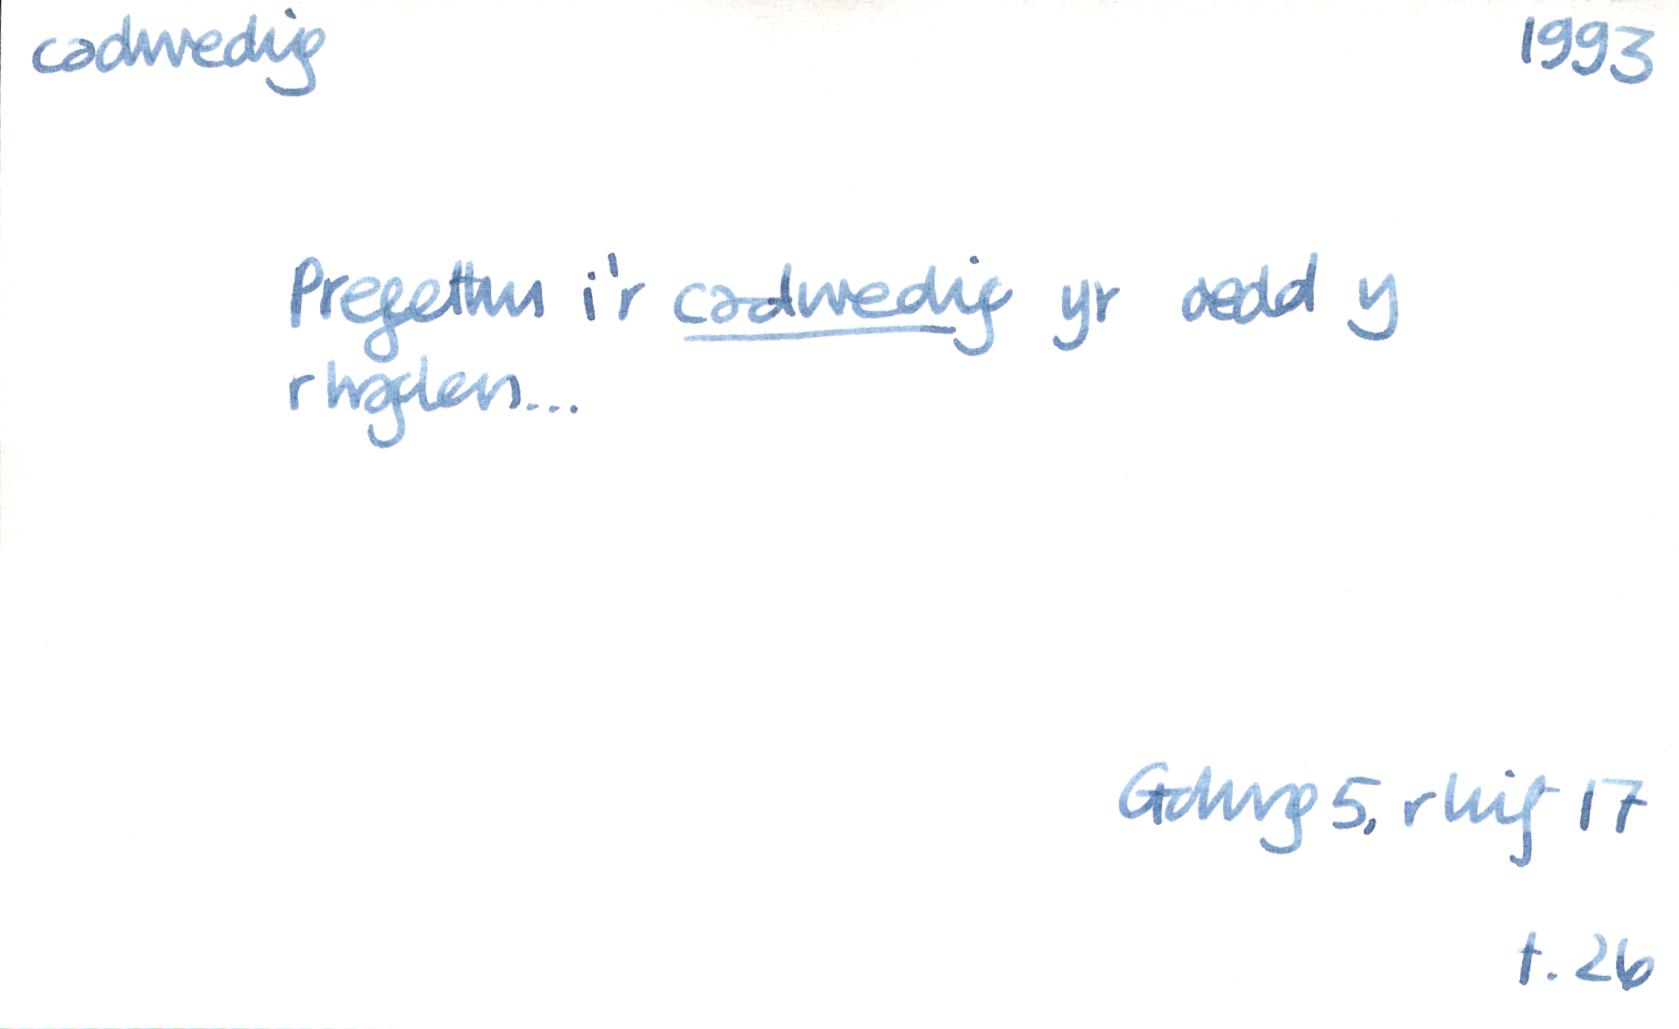 cadwedig
1993
Pregethu i'r cadwedig yr oedd y
rhaglen...
Golwg 5, rhif 17
t. 26